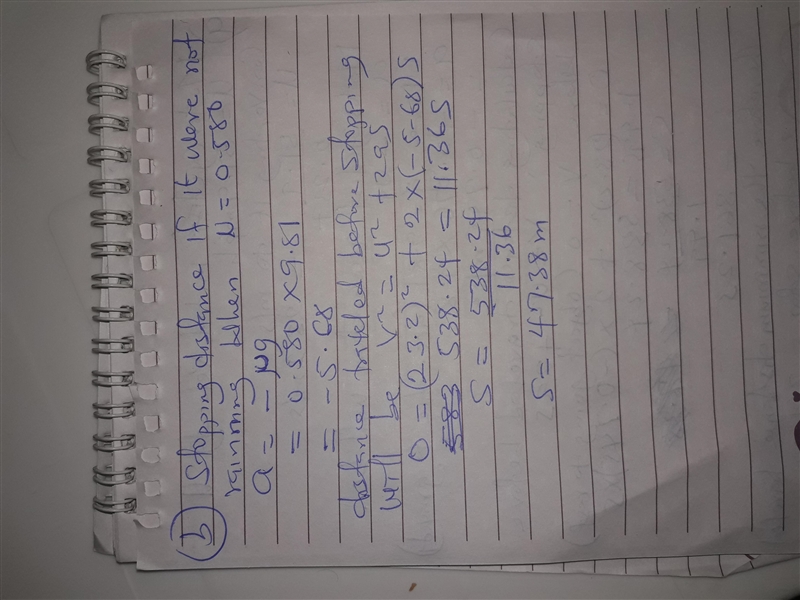 (b) Stopping distance if it were not
raining when μ = 0.580
a = - μg
= 0.580 × 9.81
= - 5.68
distance traveled before stopping
will be v² = u² + 2as
0 = (23.2)² + 2 × (-5-68) S
538.24 = 11.36 S
S = 538.24
11.36
S = 47.38 m